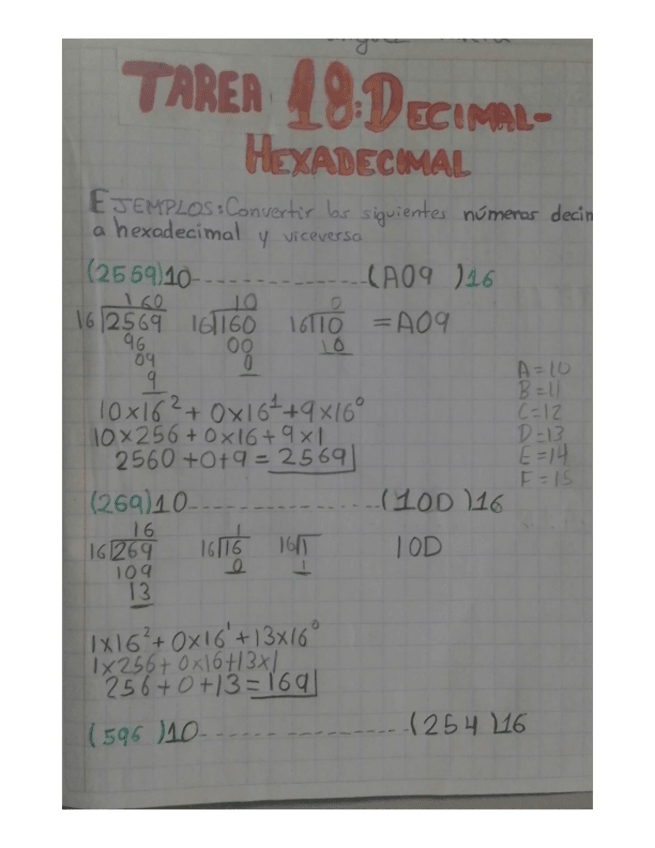 TAREA 18: DECIMAL-
HEXADECIMAL
EJEMPLOS: Convertir los siguientes números decim
a hexadecimal y viceversa
(2569)10---------------(A09 )16
160 10 0
16 2569 16 160 16 10 = A09
96 00 10
09 0
9
A=10
B=11
C=12
D=13
E=14
F=15
10x16² + 0x16¹ + 9x16⁰
10x256 + 0x16 + 9x1
2560 + 0 + 9 = 2569
(269)10---------------(10D )16
16 1
16 269 16 16 16 1 10D
109 0 1
13
1x16² + 0x16¹ + 13x16⁰
1x256 + 0x16 + 13x1
256 + 0 + 13 = 169
(596 )10---------------(254 )16